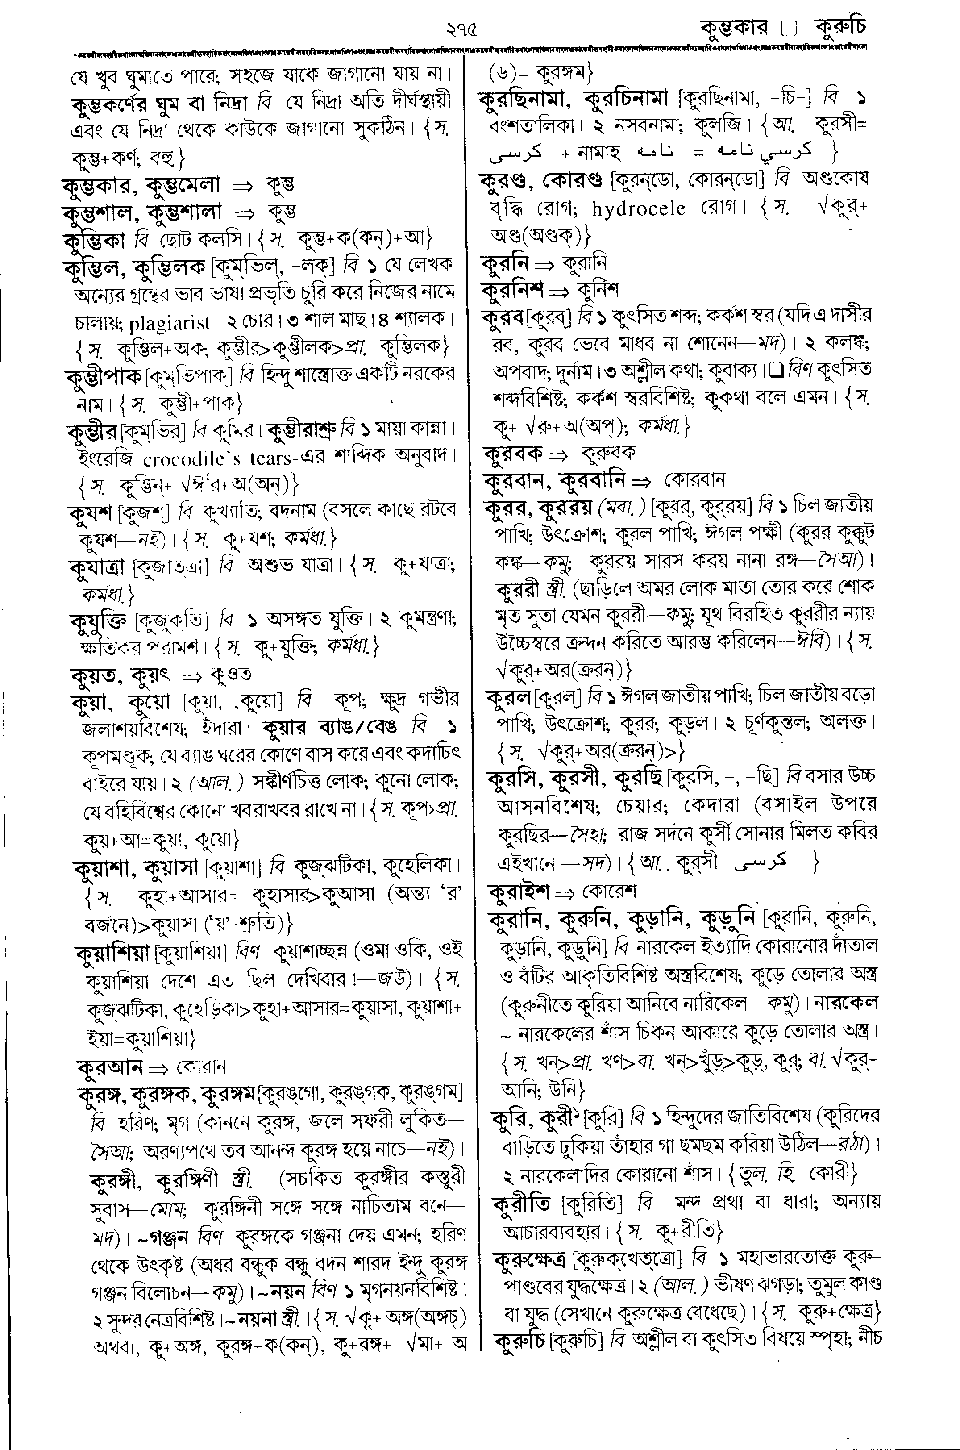 ২৭৫
কুম্ভকার [ ] কুরুচি
যে খুব ঘুমাতে পারে; সহজে যাকে জাগানো যায় না।
কুম্ভকর্ণের ঘুম বা নিদ্রা বি যে নিদ্রা অতি দীর্ঘস্থায়ী
এবং যে নিদ্রা থেকে কাউকে জাগানো সুকঠিন। {স.
কুম্ভ+কর্ণ; বহু}
কুম্ভকার, কুম্ভমেলা ⇒ কুম্ভ
কুম্ভশাল, কুম্ভশালা ⇒ কুম্ভ
কুম্ভিকা বি ছোট কলসি। {স. কুম্ভ+ক(কন্)+আ}
কুম্ভিল, কুম্ভিলক [কুম্‌ভিল্, -লক্] বি ১ যে লেখক
অন্যের গ্রন্থের ভাব ভাষা প্রভৃতি চুরি করে নিজের নামে
চালায়; plagiarist ২ চোর। ৩ শাল মাছ। ৪ শ্যালক।
{স. কুম্ভিল+অক; কুম্ভীর>কুম্ভীলক>প্রা. কুম্ভিলক}
কুম্ভীপাক [কুম্‌ভিপাক্] বি হিন্দু শাস্ত্রোক্ত একটি নরকের
নাম। {স. কুম্ভী+পাক}
কুম্ভীর [কুম্‌ভির্] বি কুমির। কুম্ভীরাশ্রু বি ১ মায়া কান্না।
ইংরেজি crocodile's tears-এর শাব্দিক অনুবাদ।
{স. কুম্ভিন্+ √ঈর্+অ(অন্)}
কুযশ [কুজশ্] বি কুখ্যাতি; বদনাম (বসলে কাছে রটবে
কুযশ—নই)। {স. কু+যশ; কর্মধা.}
কুযাত্রা [কুজাত্‌ত্রা] বি অশুভ যাত্রা। {স. কু+যাত্রা;
কর্মধা.}
কুযুক্তি [কুজুক্‌তি] বি ১ অসঙ্গত যুক্তি। ২ কুমন্ত্রণা;
ক্ষতিকর পরামর্শ। {স. কু+যুক্তি; কর্মধা.}
কুয়ত, কুয়ৎ ⇒ কুওত
কুয়া, কুয়ো [কুয়া, কুয়ো] বি কূপ; ক্ষুদ্র গভীর
জলাশয়বিশেষ; ইদারা। কুয়ার ব্যাঙ/বেঙ বি ১
কূপমণ্ডুক; যে ব্যাঙ ঘরের কোণে বাস করে এবং কদাচিৎ
বাইরে যায়। ২ (আল.) সঙ্কীর্ণচিত্ত লোক; কুনো লোক;
যে বহির্বিশ্বের কোনো খবরাখবর রাখে না। {স. কূপ>প্রা.
কুয়+আ=কুয়া, কুয়ো}
কুয়াশা, কুয়াসা [কুয়াশা] বি কুজ্ঝটিকা, কুহেলিকা।
{স. কুহা+আসার= কুহাসার>কুআসা (অন্ত্য 'র'
বর্জনে)>কুয়াসা ('য়' শ্রুতি)}
কুয়াশিয়া [কুয়াশিয়া] বিণ কুয়াশাচ্ছন্ন (ওমা ওকি, ওই
কুয়াশিয়া দেশে এত ছিল দেখিবার।—জউ)। {স.
কুজ্ঝটিকা, কুহেড়িকা>কুহা+আসার=কুয়াসা, কুয়াশা+
ইয়া=কুয়াশিয়া}
কুরআন ⇒ কোরান
কুরঙ্গ, কুরঙ্গক, কুরঙ্গম [কুরঙ্‌গো, কুরঙ্‌গক্, কুরঙ্‌গম্]
বি হরিণ; মৃগ (কাননে কুরঙ্গ, জলে সফরী লুকিত—
সৈআ; অরণ্যপথে তব আনন্দ কুরঙ্গ হয়ে নাচে—নই)।
কুরঙ্গী, কুরঙ্গিণী স্ত্রী. (সচকিত কুরঙ্গীর কস্তুরী
সুবাস—মোম; কুরঙ্গিনী সঙ্গে সঙ্গে নাচিতাম বনে—
মদ)। ~গঞ্জন বিণ কুরঙ্গকে গঞ্জনা দেয় এমন; হরিণ
থেকে উৎকৃষ্ট (অধর বন্ধুক বন্ধু বদন শারদ ইন্দু কুরঙ্গ
গঞ্জন বিলোচন—কমু)। ~নয়ন বিণ ১ মৃগনয়নবিশিষ্ট;
২ সুন্দর নেত্রবিশিষ্ট। ~নয়না স্ত্রী.। {স. √কৃ+ অঙ্গ(অঙ্গচ্)
অথবা, কু+অঙ্গ, কুরঙ্গ+ক(কন্), কু+রঙ্গ+ √মা+ অ
(৬)– কুরঙ্গম}
কুরছিনামা, কুরচিনামা [কুরছিনামা, -চি-] বি ১
বংশতালিকা। ২ নসবনাম; কুলজি। {আ. কুরসী=
كرسي + নামাহ نامه = كرسي نامه }
কুরণ্ড, কোরণ্ড [কুরন্‌ডো, কোরন্‌ডো] বি অণ্ডকোষ
বৃদ্ধি রোগ; hydrocele রোগ। {স. √কুর্+
অণ্ড(অণ্ডক্)}
কুরনি ⇒ কুরানি
কুরনিশ ⇒ কুর্নিশ
কুরব [কুরব্] বি ১ কুৎসিত শব্দ; কর্কশ স্বর (যদি এ দাসীর
রব, কুরব ভেবে মাধব না শোনেন—মদ)। ২ কলঙ্ক;
অপবাদ; দুর্নাম। ৩ অশ্লীল কথা; কুবাক্য। ❑ বিণ কুৎসিত
শব্দবিশিষ্ট; কর্কশ স্বরবিশিষ্ট; কুকথা বলে এমন। {স.
কু+ √রু+অ(অপ্); কর্মধা.}
কুরবক ⇒ কুরুবক
কুরবান, কুরবানি ⇒ কোরবান
কুরর, কুররয় (মবা.) [কুরর্, কুর্‌রয়্] বি ১ চিল জাতীয়
পাখি; উৎক্রোশ; কুরল পাখি; ঈগল পক্ষী (কুরর কুক্কুট
কঙ্ক—কমু; কুররয় সারস করয় নানা রঙ্গ—সৈআ)।
কুররী স্ত্রী. (ছাড়িলে অমর লোক মাতা তোর করে শোক
মৃত সুতা যেমন কুররী—কমু; যূথ বিরহিত কুররীর ন্যায়
উচ্চৈস্বরে ক্রন্দন করিতে আরম্ভ করিলেন—ঈবি)। {স.
√কুর্+অর(ক্ররন্)}
কুরল [কুরল্] বি ১ ঈগল জাতীয় পাখি; চিল জাতীয় বড়ো
পাখি; উৎক্রোশ; কুরর; কুড়ল। ২ চূর্ণকুন্তল; অলক্ত।
{স. √কুর্+অর(ক্ররন্)>}
কুরসি, কুরসী, কুরছি [কুরসি, -, -ছি] বি বসার উচ্চ
আসনবিশেষ; চেয়ার; কেদারা (বসাইল উপরে
কুরছির—সৈহা; রাজ সর্দনে কুর্সী সোনার মিলত কবির
এইখানে —সদ)। {আ. কুরসী كرسى }
কুরাইশ ⇒ কোরেশ
কুরানি, কুরুনি, কুড়ানি, কুড়ুনি [কুরানি, কুরুনি,
কুড়ানি, কুড়ুনি] বি নারকেল ইত্যাদি কোরানোর দাঁতাল
ও বঁটির আকৃতিবিশিষ্ট অস্ত্রবিশেষ; কুড়ে তোলার অস্ত্র
(কুরুনীতে কুরিয়া আনিবে নারিকেল কমু)। নারকেল
~ নারকেলের শাঁস চিকন আকারে কুড়ে তোলার অস্ত্র।
{স. খন>প্রা. খণ>বা. খন্>খুঁড়>কুড়, কুর্; বা. √কুর্-
আনি; উনি}
কুরি, কুরী² [কুরি] বি ১ হিন্দুদের জাতিবিশেষ (কুরিদের
বাড়িতে ঢুকিয়া তাঁহার গা ছমছম করিয়া উঠিল—রঠা)।
২ নারকেলাদির কোধানো শাঁস। {তুল. হি. কোরী}
কুরীতি [কুরিতি] বি মন্দ প্রথা বা ধারা; অন্যায়
আচারব্যবহার। {স. কু+রীতি}
কুরুক্ষেত্র [কুরুক্‌খেত্‌ত্রো] বি ১ মহাভারতোক্ত কুরু-
পাণ্ডবের যুদ্ধক্ষেত্র। ২ (আল.) ভীষণ ঝগড়া; তুমুল কাণ্ড
বা যুদ্ধ (সেখানে কুরুক্ষেত্র বেধেছে)। {স. কুরু+ক্ষেত্র}
কুরুচি [কুরুচি] বি অশ্লীল বা কুৎসিত বিষয়ে স্পৃহা; নীচ